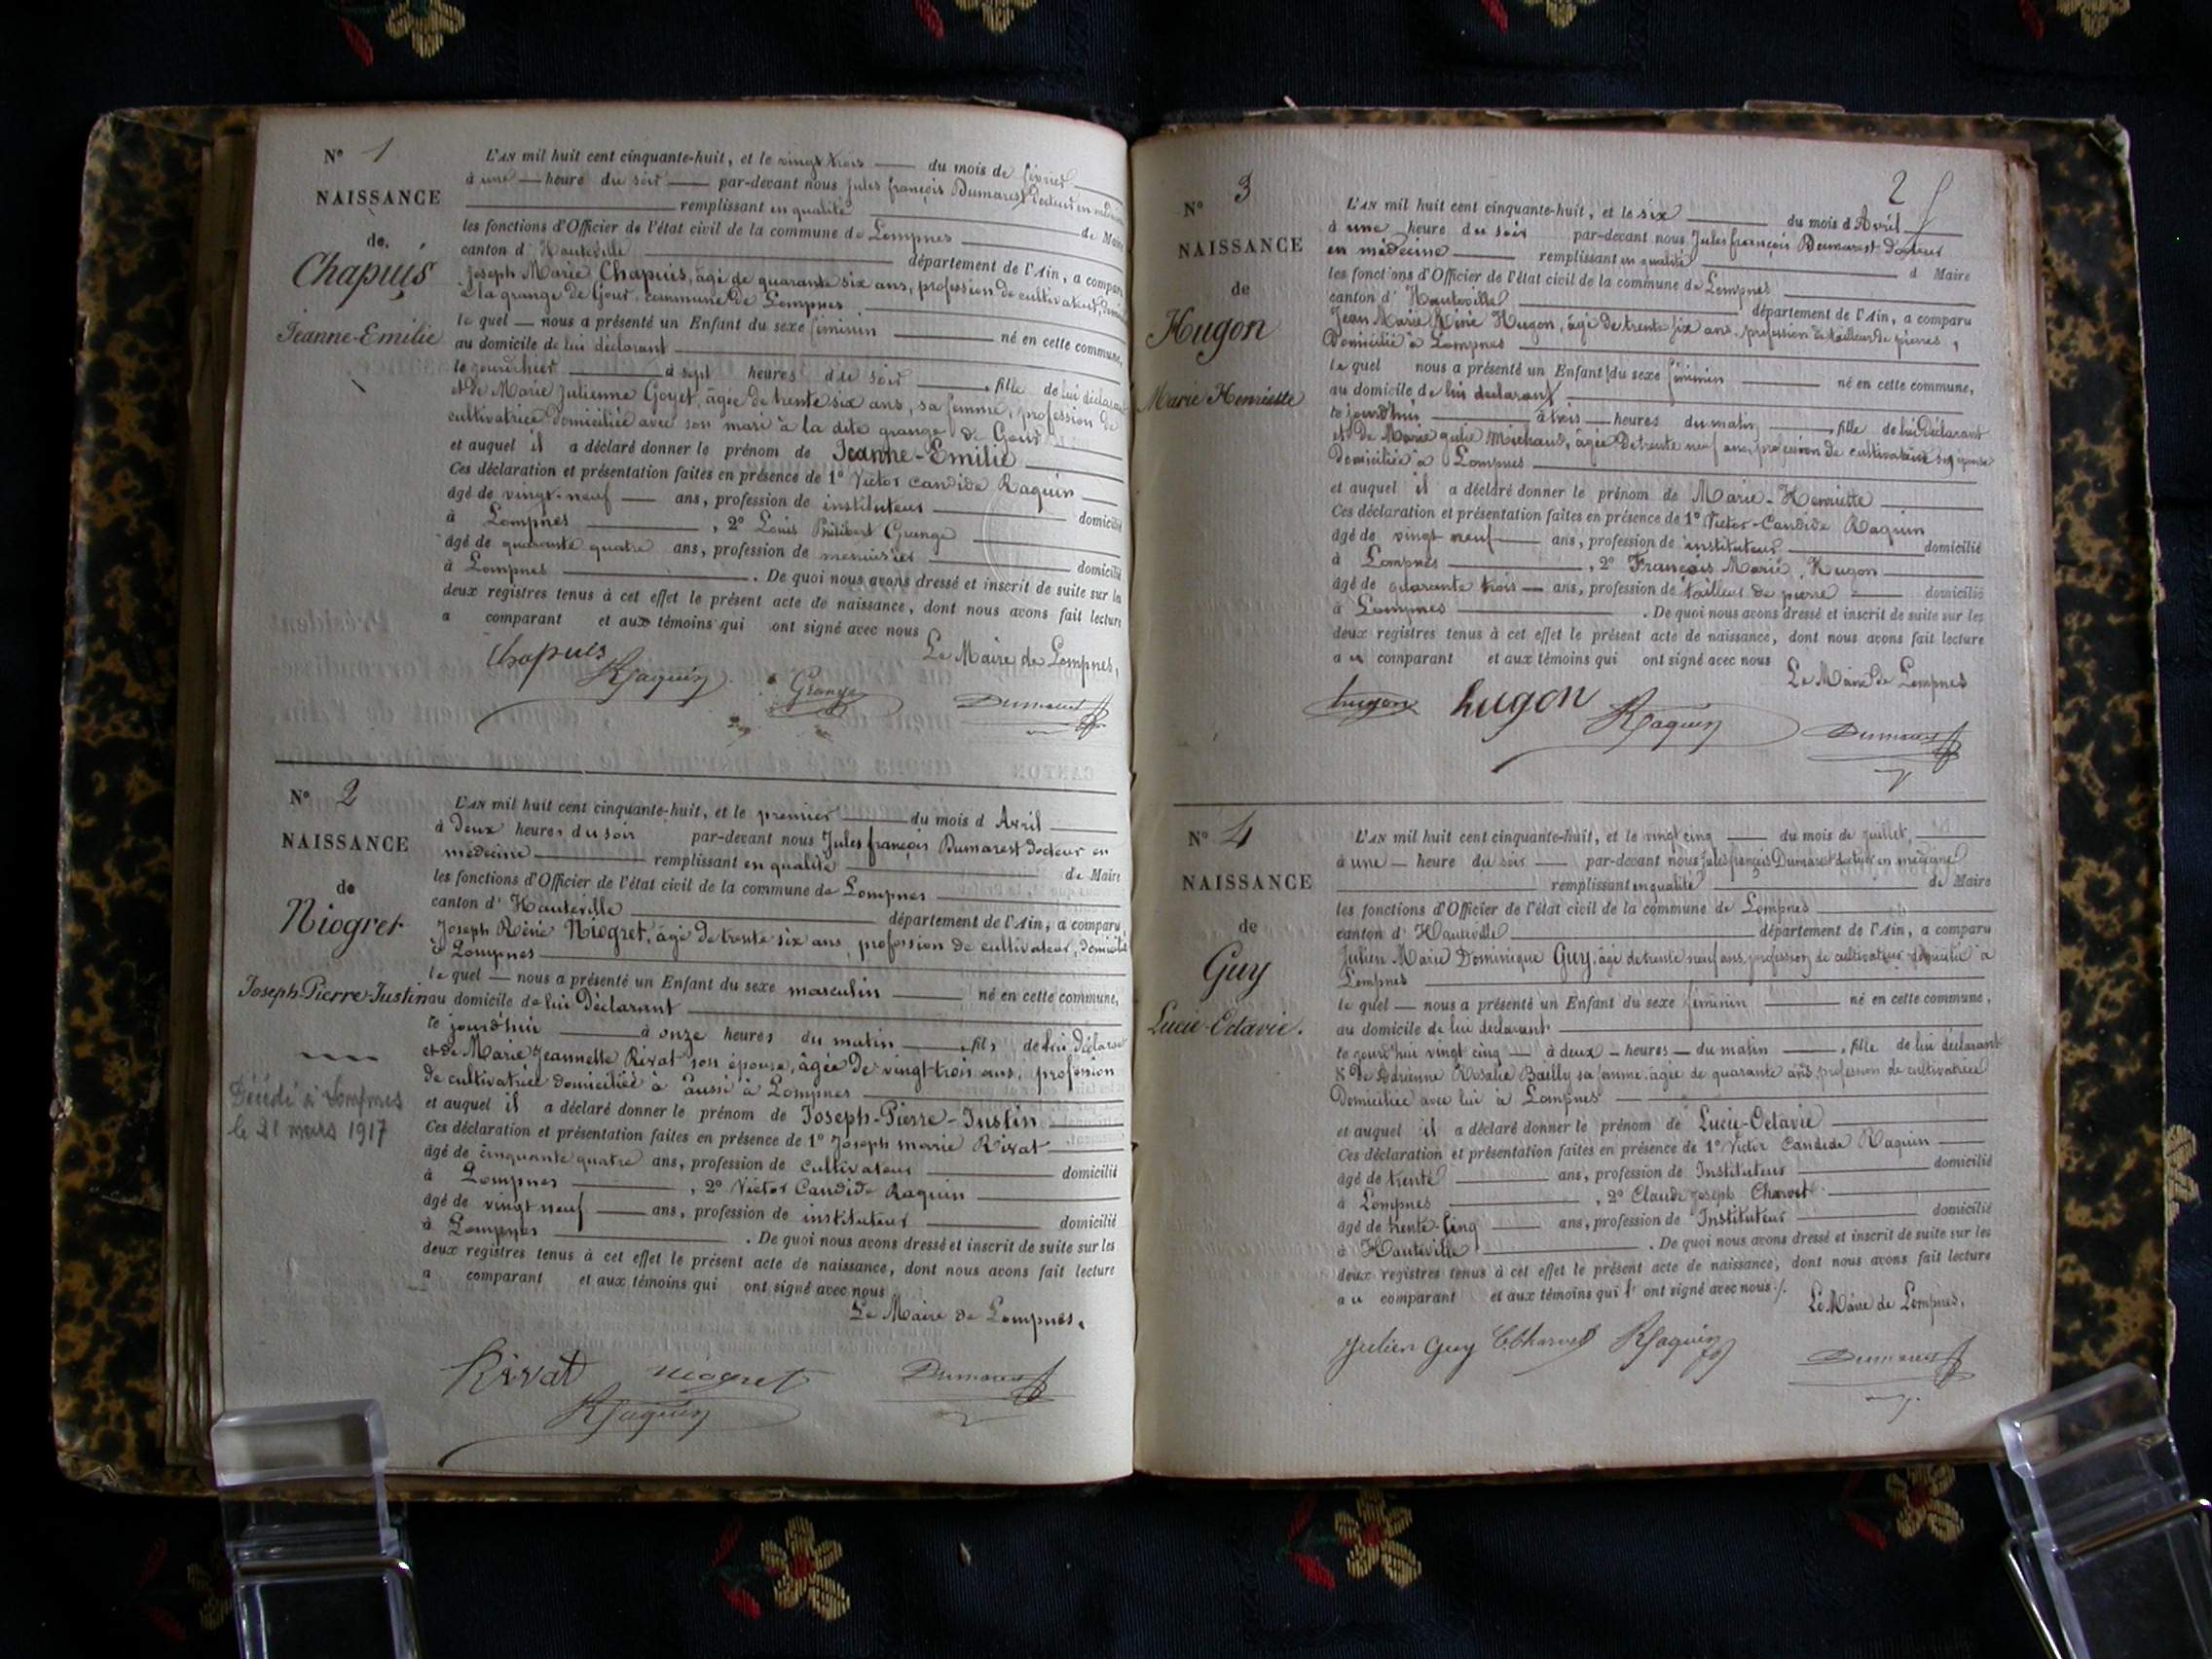 N° 1
NAISSANCE
de
Chapuis
Jeanne-Emilie
L'AN mil huit cent cinquante-huit, et le vingt trois du mois de février
à une heure du soir par-devant nous Jules françois Dumarest docteur en médecine
remplissant en qualité de Maire
les fonctions d'Officier de l'état civil de la commune de Lompnes
canton d' Hauteville département de l'Ain, a comparu
Joseph Marie Chapuis, âgé de quarante six ans, profession de cultivateur,
à la grange de Gour, commune de Lompnes
le quel nous a présenté un Enfant du sexe féminin né en cette commune,
au domicile de lui déclarant
le jourd'hier à sept heures du soir , fille de lui déclarant
et de Marie Julienne Goyet, âgée de trente six ans, sa femme, profession de
cultivatrice domiciliée avec son mari à la dite grange de Gour
et auquel il a déclaré donner le prénom de Jeanne-Emilie
Ces déclaration et présentation faites en présence de 1° Victor Candide Raquin
âgé de vingt-neuf ans, profession de instituteur domicilié
à Lompnes , 2° Louis Philibert Grange
âgé de quarante quatre ans, profession de menuisier domicilié
à Lompnes . De quoi nous avons dressé et inscrit de suite sur les
deux registres tenus à cet effet le présent acte de naissance, dont nous avons fait lecture
a comparant et aux témoins qui ont signé avec nous
Le Maire de Lompnes,
Chapuis Raquin Grange Dumarest
N° 2
NAISSANCE
de
Niogret
Joseph-Pierre-Justin
Décédé à Lompnes
le 21 mars 1917
L'AN mil huit cent cinquante-huit, et le premier du mois d Avril
à Deux heures du soir par-devant nous Jules françois Dumarest docteur en
médecine remplissant en qualité de Maire
les fonctions d'Officier de l'état civil de la commune de Lompnes
canton d' Hauteville département de l'Ain, a comparu
Joseph Réné Niogret, âgé de trente six ans, profession de cultivateur, domicilié
à Lompnes
le quel nous a présenté un Enfant du sexe masculin né en cette commune,
au domicile de lui Déclarant
le jourd'hui à onze heures du matin , fils de lui déclarant
et de Marie Jeannette Rivat son épouse, âgée de vingt trois ans, profession
de cultivatrice domiciliée à aussi à Lompnes
et auquel il a déclaré donner le prénom de Joseph-Pierre-Justin
Ces déclaration et présentation faites en présence de 1° Joseph marie Rivat
âgé de cinquante quatre ans, profession de cultivateur domicilié
à Lompnes , 2° Victor Candide Raquin
âgé de vingt neuf ans, profession de instituteur domicilié
à Lompnes . De quoi nous avons dressé et inscrit de suite sur les
deux registres tenus à cet effet le présent acte de naissance, dont nous avons fait lecture
a comparant et aux témoins qui ont signé avec nous
Le Maire de Lompnes,
Rivat niogret Dumarest
Raquin
2
N° 3
NAISSANCE
de
Hugon
Marie Henriette
L'AN mil huit cent cinquante-huit, et le six du mois d Avril
à une heure du soir par-devant nous Jules françois Dumarest docteur
en médecine remplissant en qualité d Maire
les fonctions d'Officier de l'état civil de la commune de Lompnes
canton d' Hauteville département de l'Ain, a comparu
Jean Marie Réné Hugon, âgé de trente six ans, profession de tailleur de pierres,
Domicilié à Lompnes
le quel nous a présenté un Enfant du sexe féminin né en cette commune,
au domicile de lui declarant
le jourd'hui à trois heures du matin , fille de lui Déclarant
et de Marie julie Michaud, âgée de trente neuf ans, profession de cultivatrice son épouse
Domiciliée à Lompnes
et auquel il a déclaré donner le prénom de Marie-Henriette
Ces déclaration et présentation faites en présence de 1° Victor-Candide Raquin
âgé de vingt neuf ans, profession de instituteur domicilié
à Lompnes , 2° François Marie Hugon
âgé de quarante trois ans, profession de tailleur de pierre domicilié
à Lompnes . De quoi nous avons dressé et inscrit de suite sur les
deux registres tenus à cet effet le présent acte de naissance, dont nous avons fait lecture
au comparant et aux témoins qui ont signé avec nous
Le Maire de Lompnes
hugon hugon Raquin Dumarest
N° 4
NAISSANCE
de
Guy
Lucie-Octavie.
L'AN mil huit cent cinquante-huit, et le vingt cinq du mois de juillet,
à une heure du soir par-devant nous Jules françois Dumarest docteur en médecine
remplissant en qualité de Maire
les fonctions d'Officier de l'état civil de la commune de Lompnes
canton d' Hauteville département de l'Ain, a comparu
Julien Marie Dominique Guy, âgé de trente neuf ans, profession de cultivateur domicilié à
Lompnes
le quel nous a présenté un Enfant du sexe féminin né en cette commune,
au domicile de lui déclarant
le jourd'hui vingt cinq à deux heures du matin , fille de lui déclarant
& de Adrienne Rosalie Bailly sa femme, âgée de quarante ans, profession de cultivatrice
Domiciliée avec lui à Lompnes
et auquel il a déclaré donner le prénom de Lucie-Octavie
Ces déclaration et présentation faites en présence de 1° Victor Candide Raquin
âgé de trente ans, profession de Instituteur domicilié
à Lompnes , 2° Claude Joseph Charvet
âgé de trente-Cinq ans, profession de Instituteur domicilié
à Hauteville . De quoi nous avons dressé et inscrit de suite sur les
deux registres tenus à cet effet le présent acte de naissance, dont nous avons fait lecture
au comparant et aux témoins qui l' ont signé avec nous ./.
Le Maire de Lompnes,
Julien Guy C. Charvet Raquin Dumarest